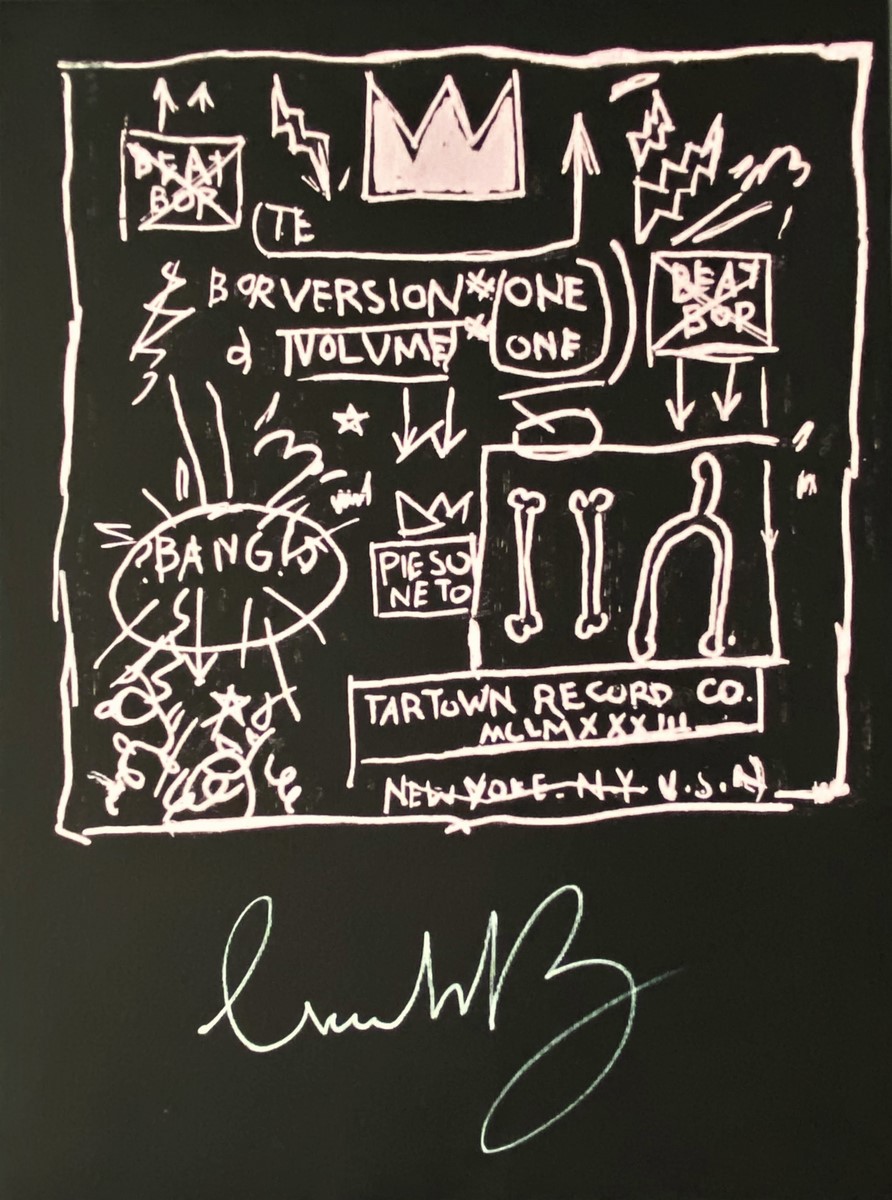 BEAT
BOR
(TE
BOR VERSION #/ONE
& VOLUME * ONE
BEAT
BOP
?BANG!
PIESO
NETO
TARTOWN RECORD CO.
MCLMXXXIII
NEW YORK. N.Y U.S.A